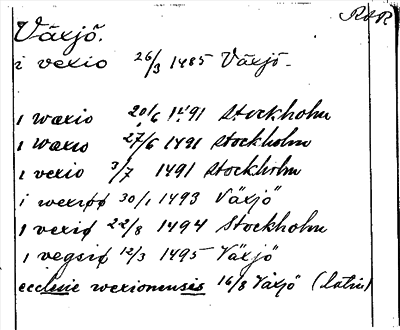 R&R
Växjö.
i vexio 26/3 1485 Växjö.
i waxio 20/6 1491 Stockholm
i waxio 27/6 1491 Stockholm
i vexio 3/7 1491 Stockholm
i wexiøø 30/1 1493 Växjö
i vexiø 22/8 1494 Stockholm
i vegsiø 12/3 1495 Växjö
ecclesie wexionensis 16/8 Växjö (Latin)